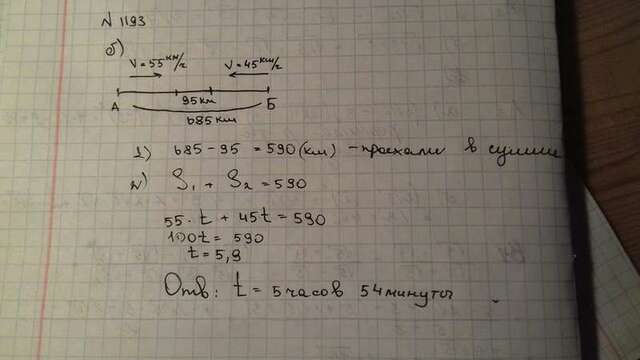 N 1193
б)
V = 55 км/ч V = 45 км/ч
А 95 км Б
685 км
1) 685 - 95 = 590 (км) - проехали в сумме
2) S₁ + S₂ = 590
55 · t + 45t = 590
100t = 590
t = 5,9
Отв: t = 5 часов 54 минуты